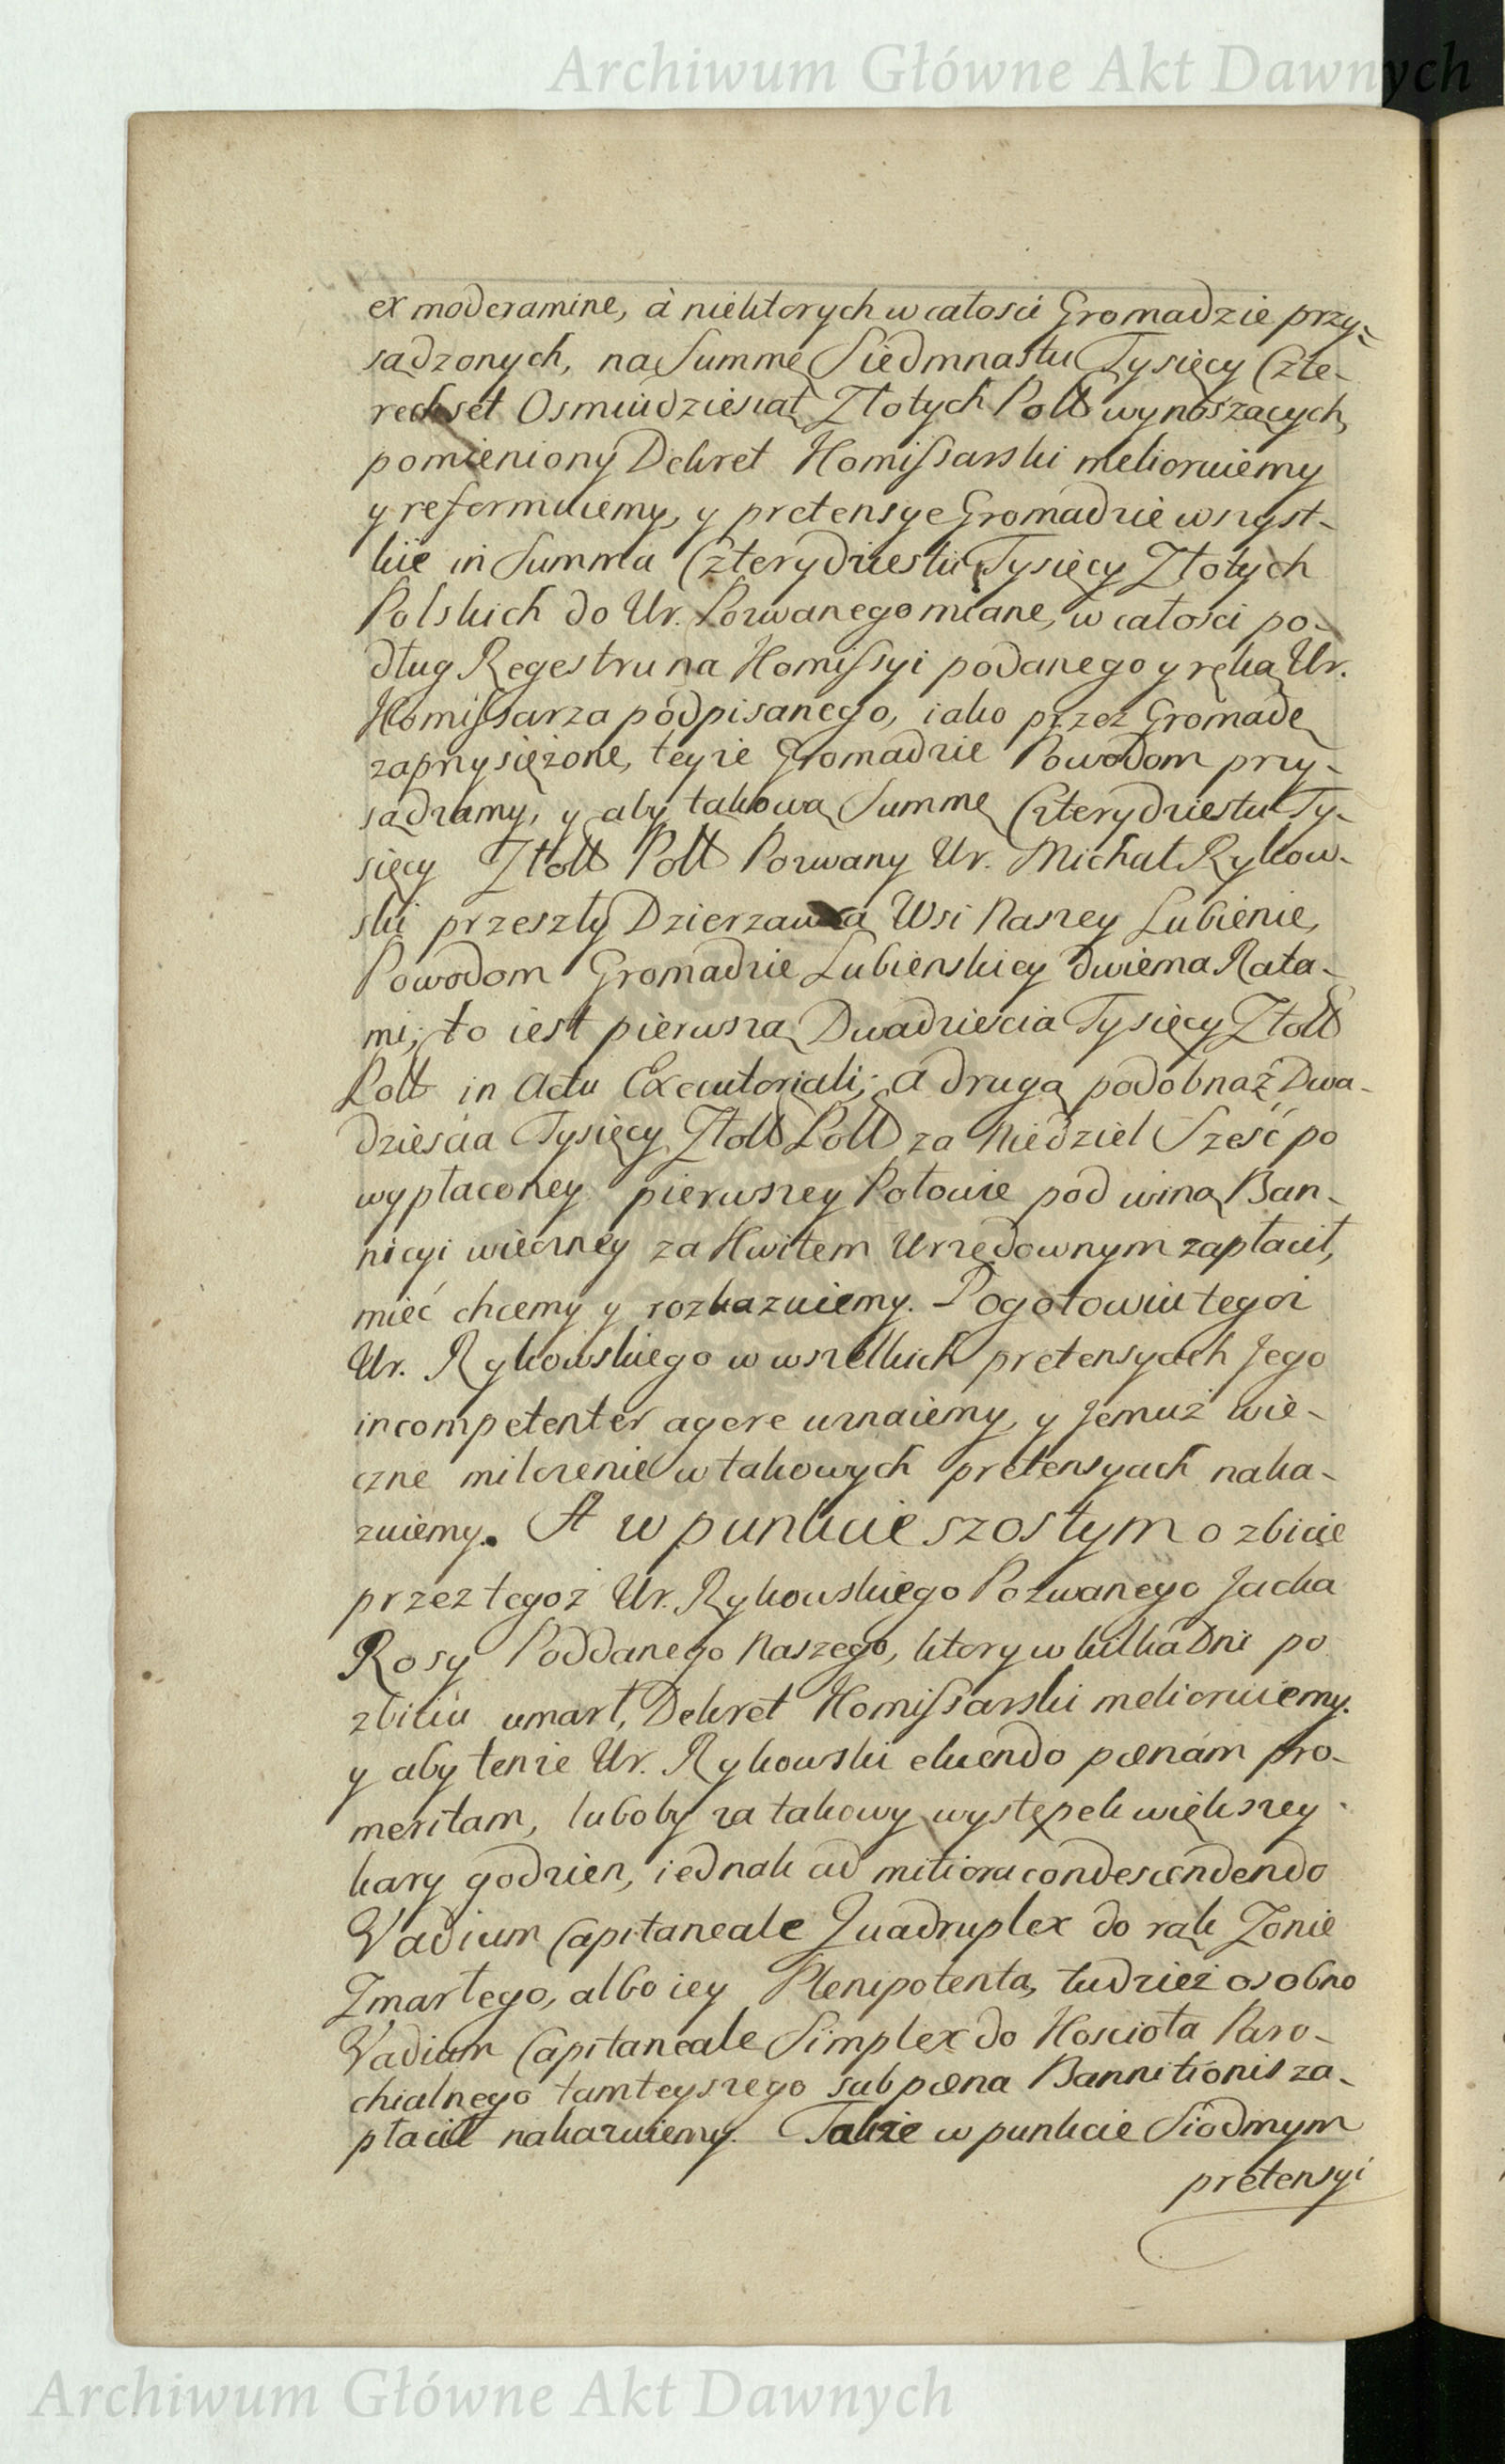 Archiwum Główne Akt Dawnych
ex moderamine, à niektorych w całosci Gromadzie przy-
sądzonych, na Summę Siedmnastu Tysięcy Czte-
rechset Osmiudziesiąt Złotych Poll wynoszących,
pomieniony Dekret Kommissarski melioruiemy
y reformuiemy, y pretensye Gromadzie wszyst-
kie in Summa Czterydziestu Tysięcy Złotych
Polskich do Ur. Pozwanego miane, w całosci po-
dług Regestru na Komissyi podanego y ręką Ur.
Komissarza podpisanego, iako przez Gromadę
zaprzysiężone, teyże Gromadzie Powodom przy-
sądzamy, y aby takową Summę Czterydziestu Ty-
sięcy Złoll Poll Pozwany Ur. Michał Rykow-
ski przeszły Dzierzawca Wsi Naszey Lubienie,
Powodom Gromadzie Lubienskiey dwiema Rata-
mi; to iest pierwszą Dwadziescia Tysięcy Złoll
Poll in Actu Executoriali; a drugą podobnąż Dwa-
dziescia Tysięcy Złoll Poll za Niedziel Sześć po
wypłaconey pierwszey Połowie pod winą Ban-
nicyi wieczney za Kwitem Urzędownym zapłacił,
mieć chcemy y rozkazuiemy. Pogotowiu tegoż
Ur. Rykowskiego w wszelkich pretensyach Jego
incompetenter agere uznaiemy, y Jemuż wie-
czne milczenie w takowych pretensyach naka-
zuiemy. A w punkcie szostym o zbicie
przez tegoż Ur. Rykowskiego Pozwanego Jacka
Rosy Poddanego Naszego, ktory w kilka Dni po
zbiciu umarł, Dekret Komissarski melioruiemy.
y aby tenże Ur. Rykowski eluendo pœnam pro-
meritam, luboby za takowy występek większey
kary godzien, iednak ad mitiora condescendendo
Vadium Capitaneale Quadruplex do rąk Zonie
Zmarłego, albo iey Plenipotenta, tudzież osobno
Vadium Capitaneale Simplex do Koscioła Paro-
chialnego tamteyszego sub pœna Bannitionis za-
płacił nakazuiemy. Takze w punkcie Siodmym
pretensyi
Archiwum Główne Akt Dawnych